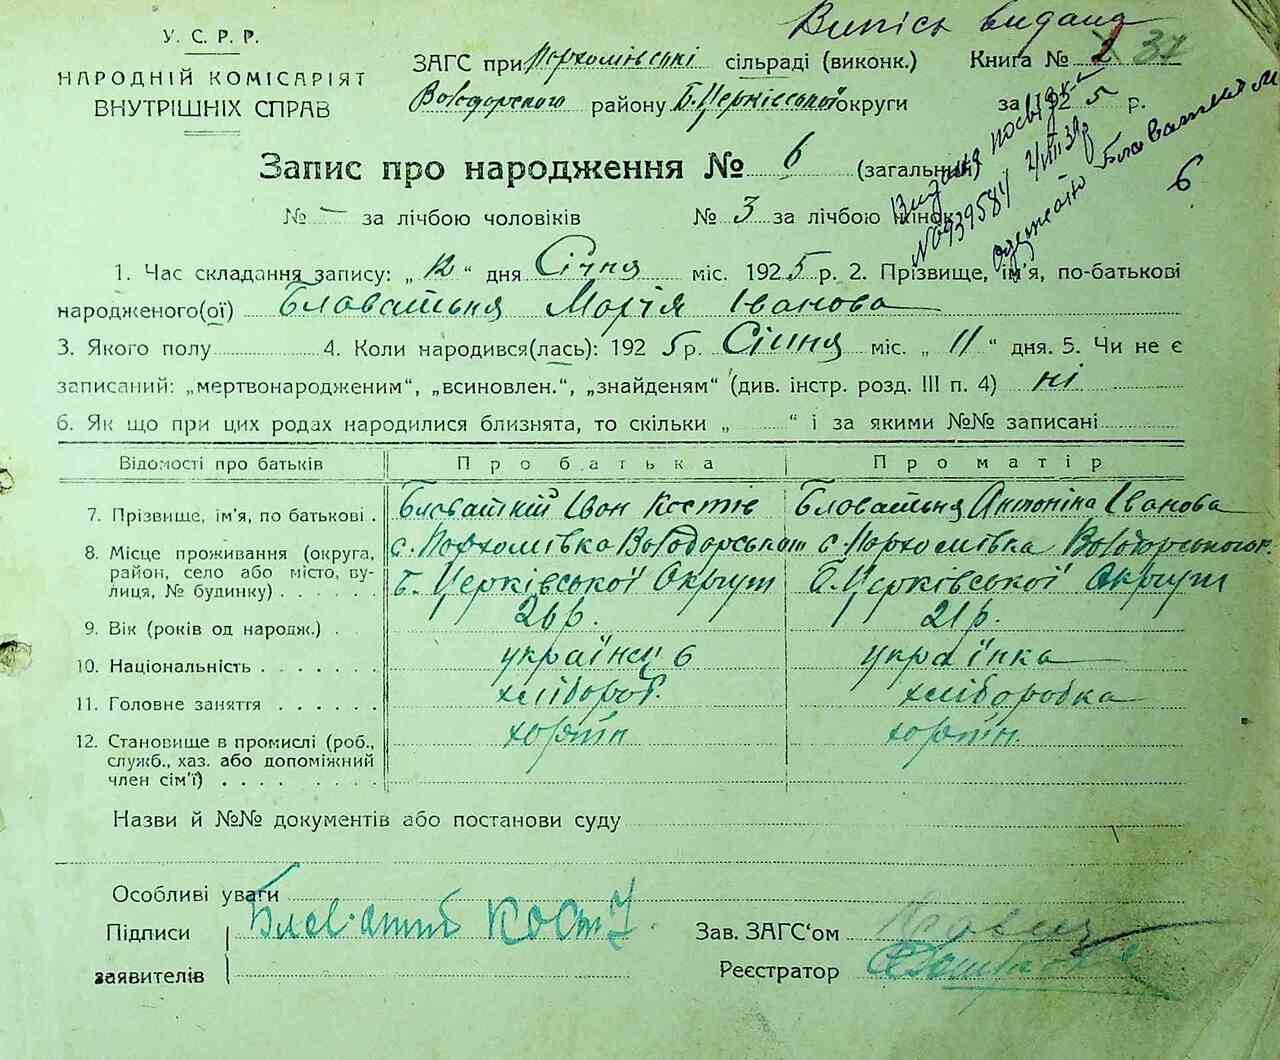 Випісь видана
У. С. Р. Р.
НАРОДНІЙ КОМІСАРІЯТ
ВНУТРІШНІХ СПРАВ
ЗАГС при Пархомівські сільраді (виконк.) Книга № 2 37
Володорського району Б.Церківської округи за 1925 р.
Видана посвідк
№ 939584
Блаватській
6
Запис про народження № 6 (загальний)
№ – за лічбою чоловіків № 3 за лічбою жінок
1. Час складання запису: „ 12 “ дня Січня міс. 1925 р. 2. Прізвище, ім’я, по-батькові
народженого(ої) Блаватьня Марія Іванова
3. Якого полу 4. Коли народився(лась): 1925 р. Січня міс. „ 11 “ дня. 5. Чи не є
записаний: „мертвонародженим“, „всиновлен.“, „знайденям“ (див. інстр. розд. III п. 4) ні
6. Як що при цих родах народилися близнята, то скільки „ “ і за якими №№ записані
Відомості про батьків Про батька Про матір
7. Прізвище, ім’я, по батькові . Блаваткий Іван Костів Блаватьня Антоніна Іванова
8. Місце проживання (округа, район, село або місто, вулиця, № будинку) с. Пархомівка Володарського с. Пархомівка Володорського р.
Б. Церківської Округи Б. Церківської Округи
9. Вік (років од народж.) 26 р. 21 р.
10. Національність українець українка
11. Головне заняття хлібороб. хліборобка
12. Становище в промислі (роб., служб., хаз. або допоміжний член сім’ї)
Назви й №№ документів або постанови суду
Особливі уваги
Підписи Блаватий Кость
заявителів
Зав. ЗАГС‘ом
Реєстратор